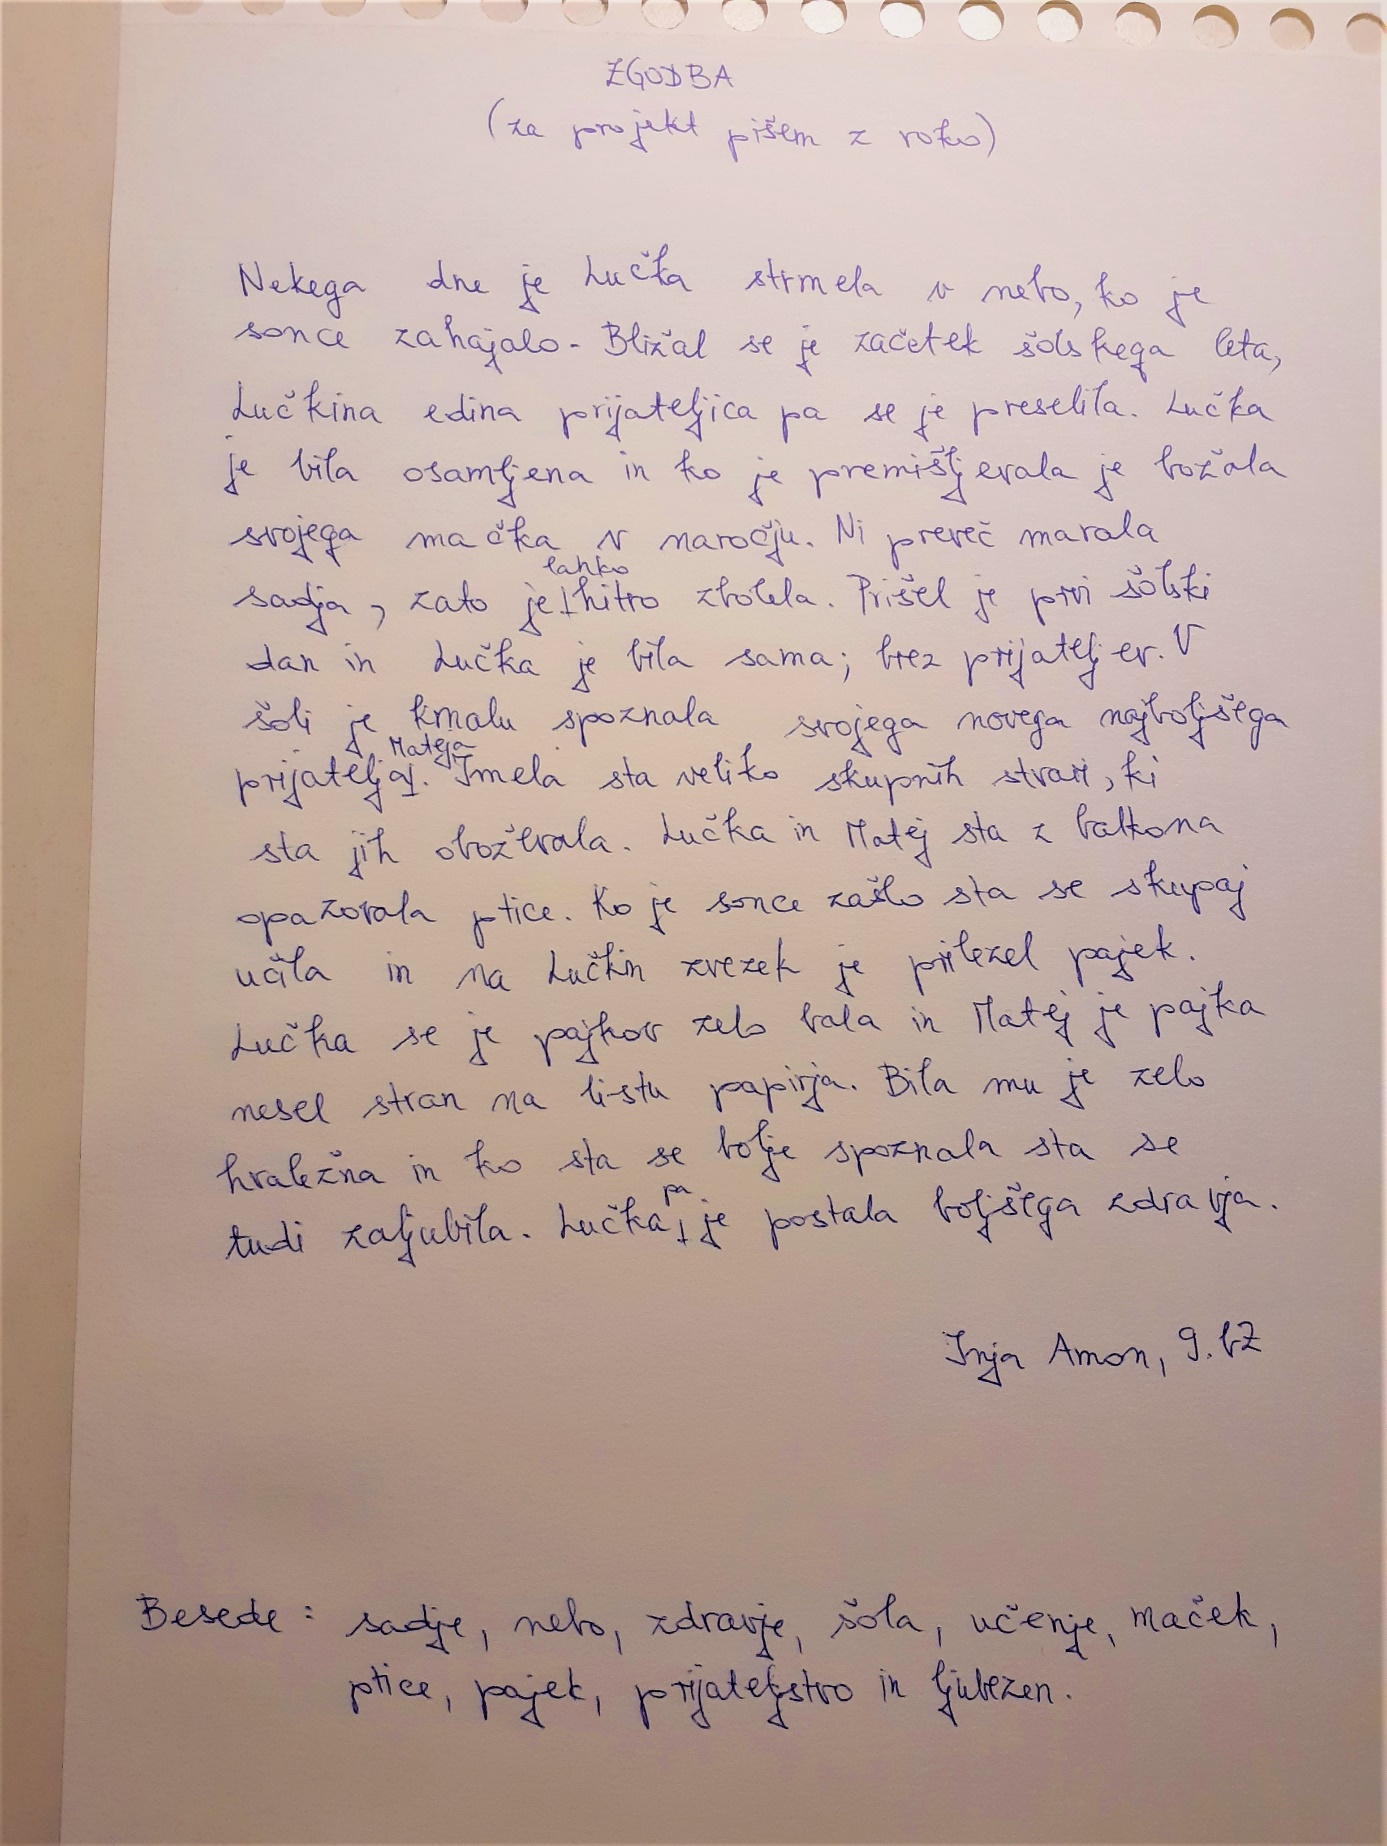 ZGODBA
(za projekt pišem z roko)
Nekega dne je Lučka strmela v nebo, ko je
sonce zahajalo. Bližal se je začetek šolskega leta,
Lučkina edina prijateljica pa se je preselila. Lučka
je bila osamljena in ko je premišljevala je božala
svojega mačka v naročju. Ni preveč marala
lahko
sadja, zato je hitro zbolela. Prišel je prvi šolski
dan in Lučka je bila sama; brez prijateljev. V
šoli je kmalu spoznala svojega novega najboljšega
Mateja
prijatelja. Imela sta veliko skupnih stvari, ki
sta jih oboževala. Lučka in Matej sta z balkona
opazovala ptice. Ko je sonce zašlo sta se skupaj
učila in na Lučkin zvezek je prilezel pajek.
Lučka se je pajkov zelo bala in Matej je pajka
nesel stran na listu papirja. Bila mu je zelo
hvaležna in ko sta se bolje spoznala sta se
pa
tudi zaljubila. Lučka je postala boljšega zdravja.
Inja Amon, 9. bZ
Besede: sadje, nebo, zdravje, šola, učenje, maček,
ptice, pajek, prijateljstvo in ljubezen.